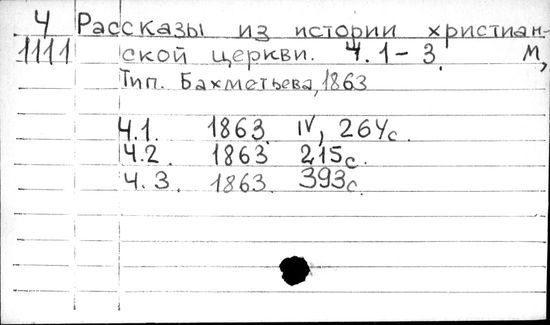 Ч Рассказы из истории христиан-
1111 ской церкви. Ч.1-3. М,
Тип. Бахметьева, 1863
Ч.1. 1863. IV, 264с.
Ч.2. 1863 215с.
Ч.3. 1863. 393с.